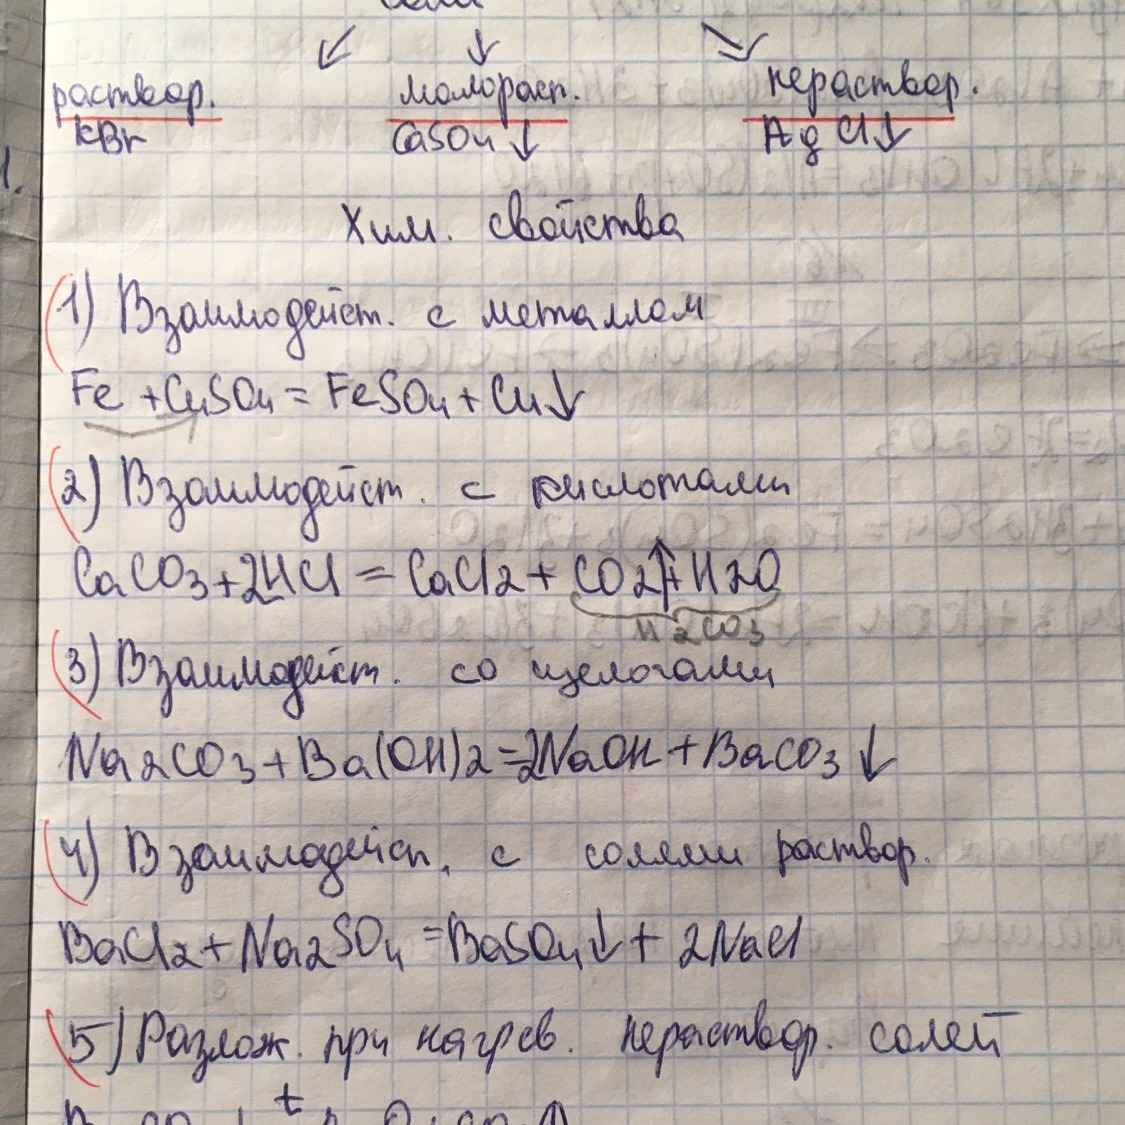 раствор. малораст. нераствор.
KBr CaSO4↓ AgCl↓
1.
Хим. свойства
1) Взаимодейст. с металлом
Fe + CuSO4 = FeSO4 + Cu↓
2) Взаимодейст. с кислотами
CaCO3 + 2HCl = CaCl2 + CO2↑ + H2O
H2CO3
3) Взаимодейст. со щелочами
Na2CO3 + Ba(OH)2 = 2NaOH + BaCO3↓
4) Взаимодейст. с солями раствор.
BaCl2 + Na2SO4 = BaSO4↓ + 2NaCl
5) Разлож. при нагрев. нераствор. солей
t